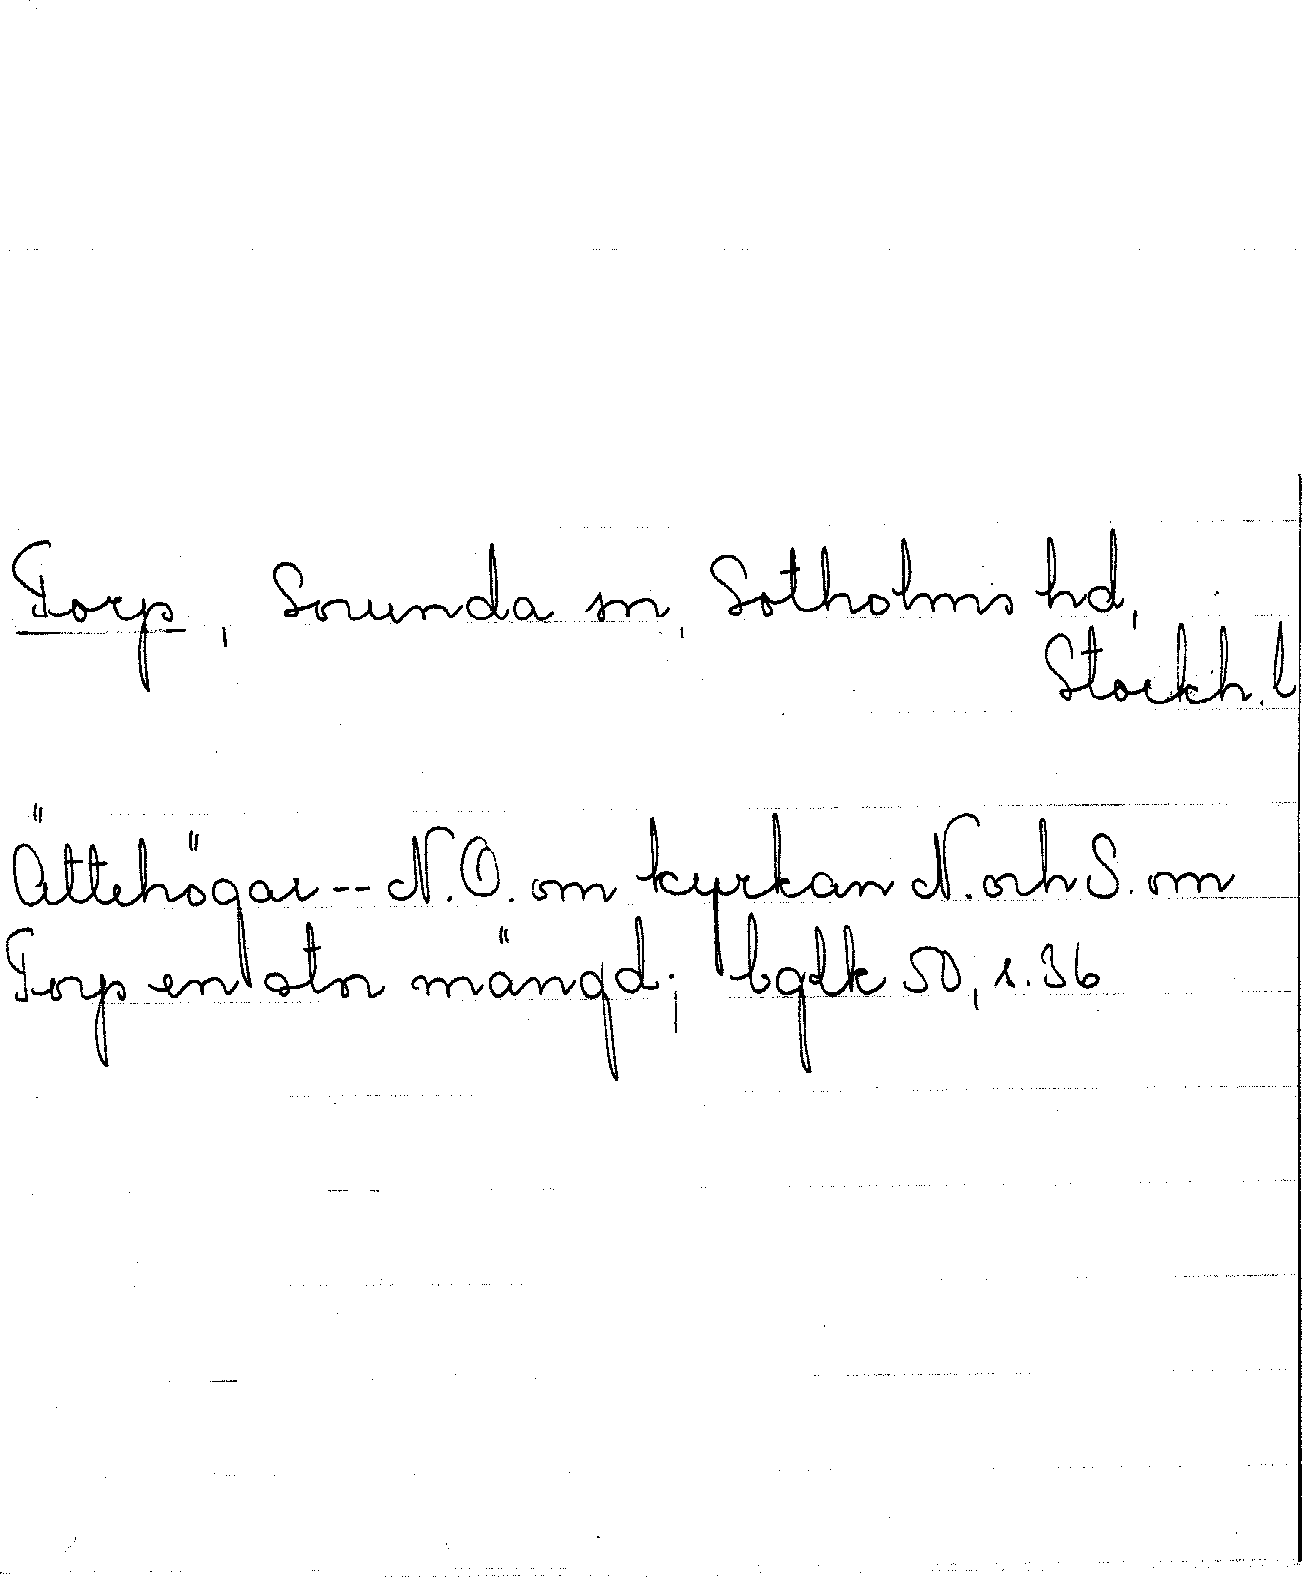 Torp, Sorunda sn, Sotholms hd,
Stockh. l
Ättehögar -- N.O. om kyrkan N. och S. om
Torp en stor mängd; bgdk 50, s. 36